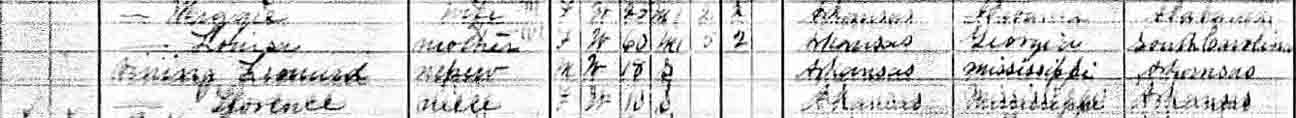 — Maggie wife F W M1 2 2 Arkansas Alabama Alabama
— Louisa mother F W 60 5 2 Arkansas Georgia South Carolina
Leonard nephew M W 18 S Arkansas Mississippi Arkansas
— Florence niece F W 10 S Arkansas Mississippi Arkansas